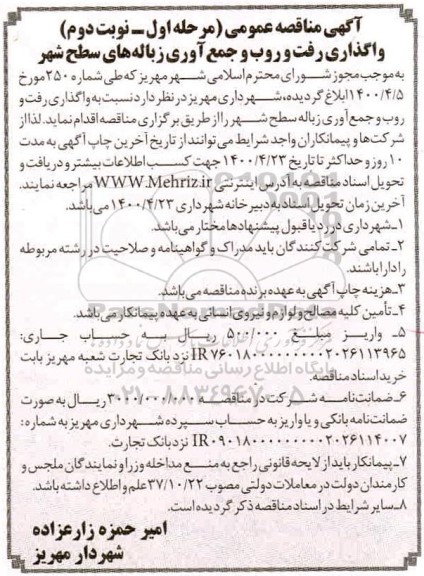 آگهی مناقصه عمومی (مرحله اول ـ نوبت دوم)
واگذاری رفت و روب و جمع آوری زباله‌های سطح شهر
به موجب مجوز شورای محترم اسلامی شهر مهریز که طی شماره ۲۵۰ مورخ
۱۴۰۰/۴/۵ ابلاغ گردیده، شهرداری مهریز در نظر دارد نسبت به واگذاری رفت و
روب و جمع آوری زباله سطح شهر را از طریق برگزاری مناقصه اقدام نماید. لذا از
شرکت‌ها و پیمانکاران واجد شرایط می‌توانند از تاریخ آخرین چاپ آگهی به مدت
۱۰ روز و حداکثر تا تاریخ ۱۴۰۰/۴/۲۳ جهت کسب اطلاعات بیشتر و دریافت و
تحویل اسناد مناقصه به آدرس اینترنتی WWW.Mehriz.ir مراجعه نمایند.
آخرین زمان تحویل اسناد به دبیرخانه شهرداری ۱۴۰۰/۴/۲۳ می‌باشد.
۱ـ شهرداری در رد یا قبول پیشنهادها مختار می‌باشد.
۲ـ تمامی شرکت‌کنندگان باید مدراک و گواهینامه و صلاحیت در رشته مربوطه
را دارا باشند.
۳ـ هزینه چاپ آگهی به عهده برنده مناقصه می‌باشد.
۴ـ تأمین کلیه مصالح و لوازم و نیروی انسانی به عهده پیمانکار می‌باشد.
۵ـ واریز مبلغ ۵۰۰/۰۰۰ ریال به حساب جاری:
IR۷۶۰۱۸۰۰۰۰۰۰۰۰۰۲۰۲۶۱۱۳۹۶۵ نزد بانک تجارت شعبه مهریز بابت
خرید اسناد مناقصه.
۶ـ ضمانت‌نامه شرکت در مناقصه ۳۰۰۰/۰۰۰/۰۰۰ ریال به صورت
ضمانت‌نامه بانکی و یا واریز به حساب سپرده شهرداری مهریز به شماره:
IR۰۹۰۱۸۰۰۰۰۰۰۰۰۰۲۰۲۶۱۱۴۰۰۷ نزد بانک تجارت.
۷ـ پیمانکار باید از لایحه قانونی راجع به منع مداخله وزرا و نمایندگان ملجس و
کارمندان دولت در معاملات دولتی مصوب ۳۷/۱۰/۲۲ علم و اطلاع داشته باشد.
۸ـ سایر شرایط در اسناد مناقصه ذکر گردیده است.
امیر حمزه زارعزاده
شهردار مهریز
پایگاه اطلاع رسانی مناقصه و مزایده
۰۲۱-۸۸۳۴۹۶۷۰-۵